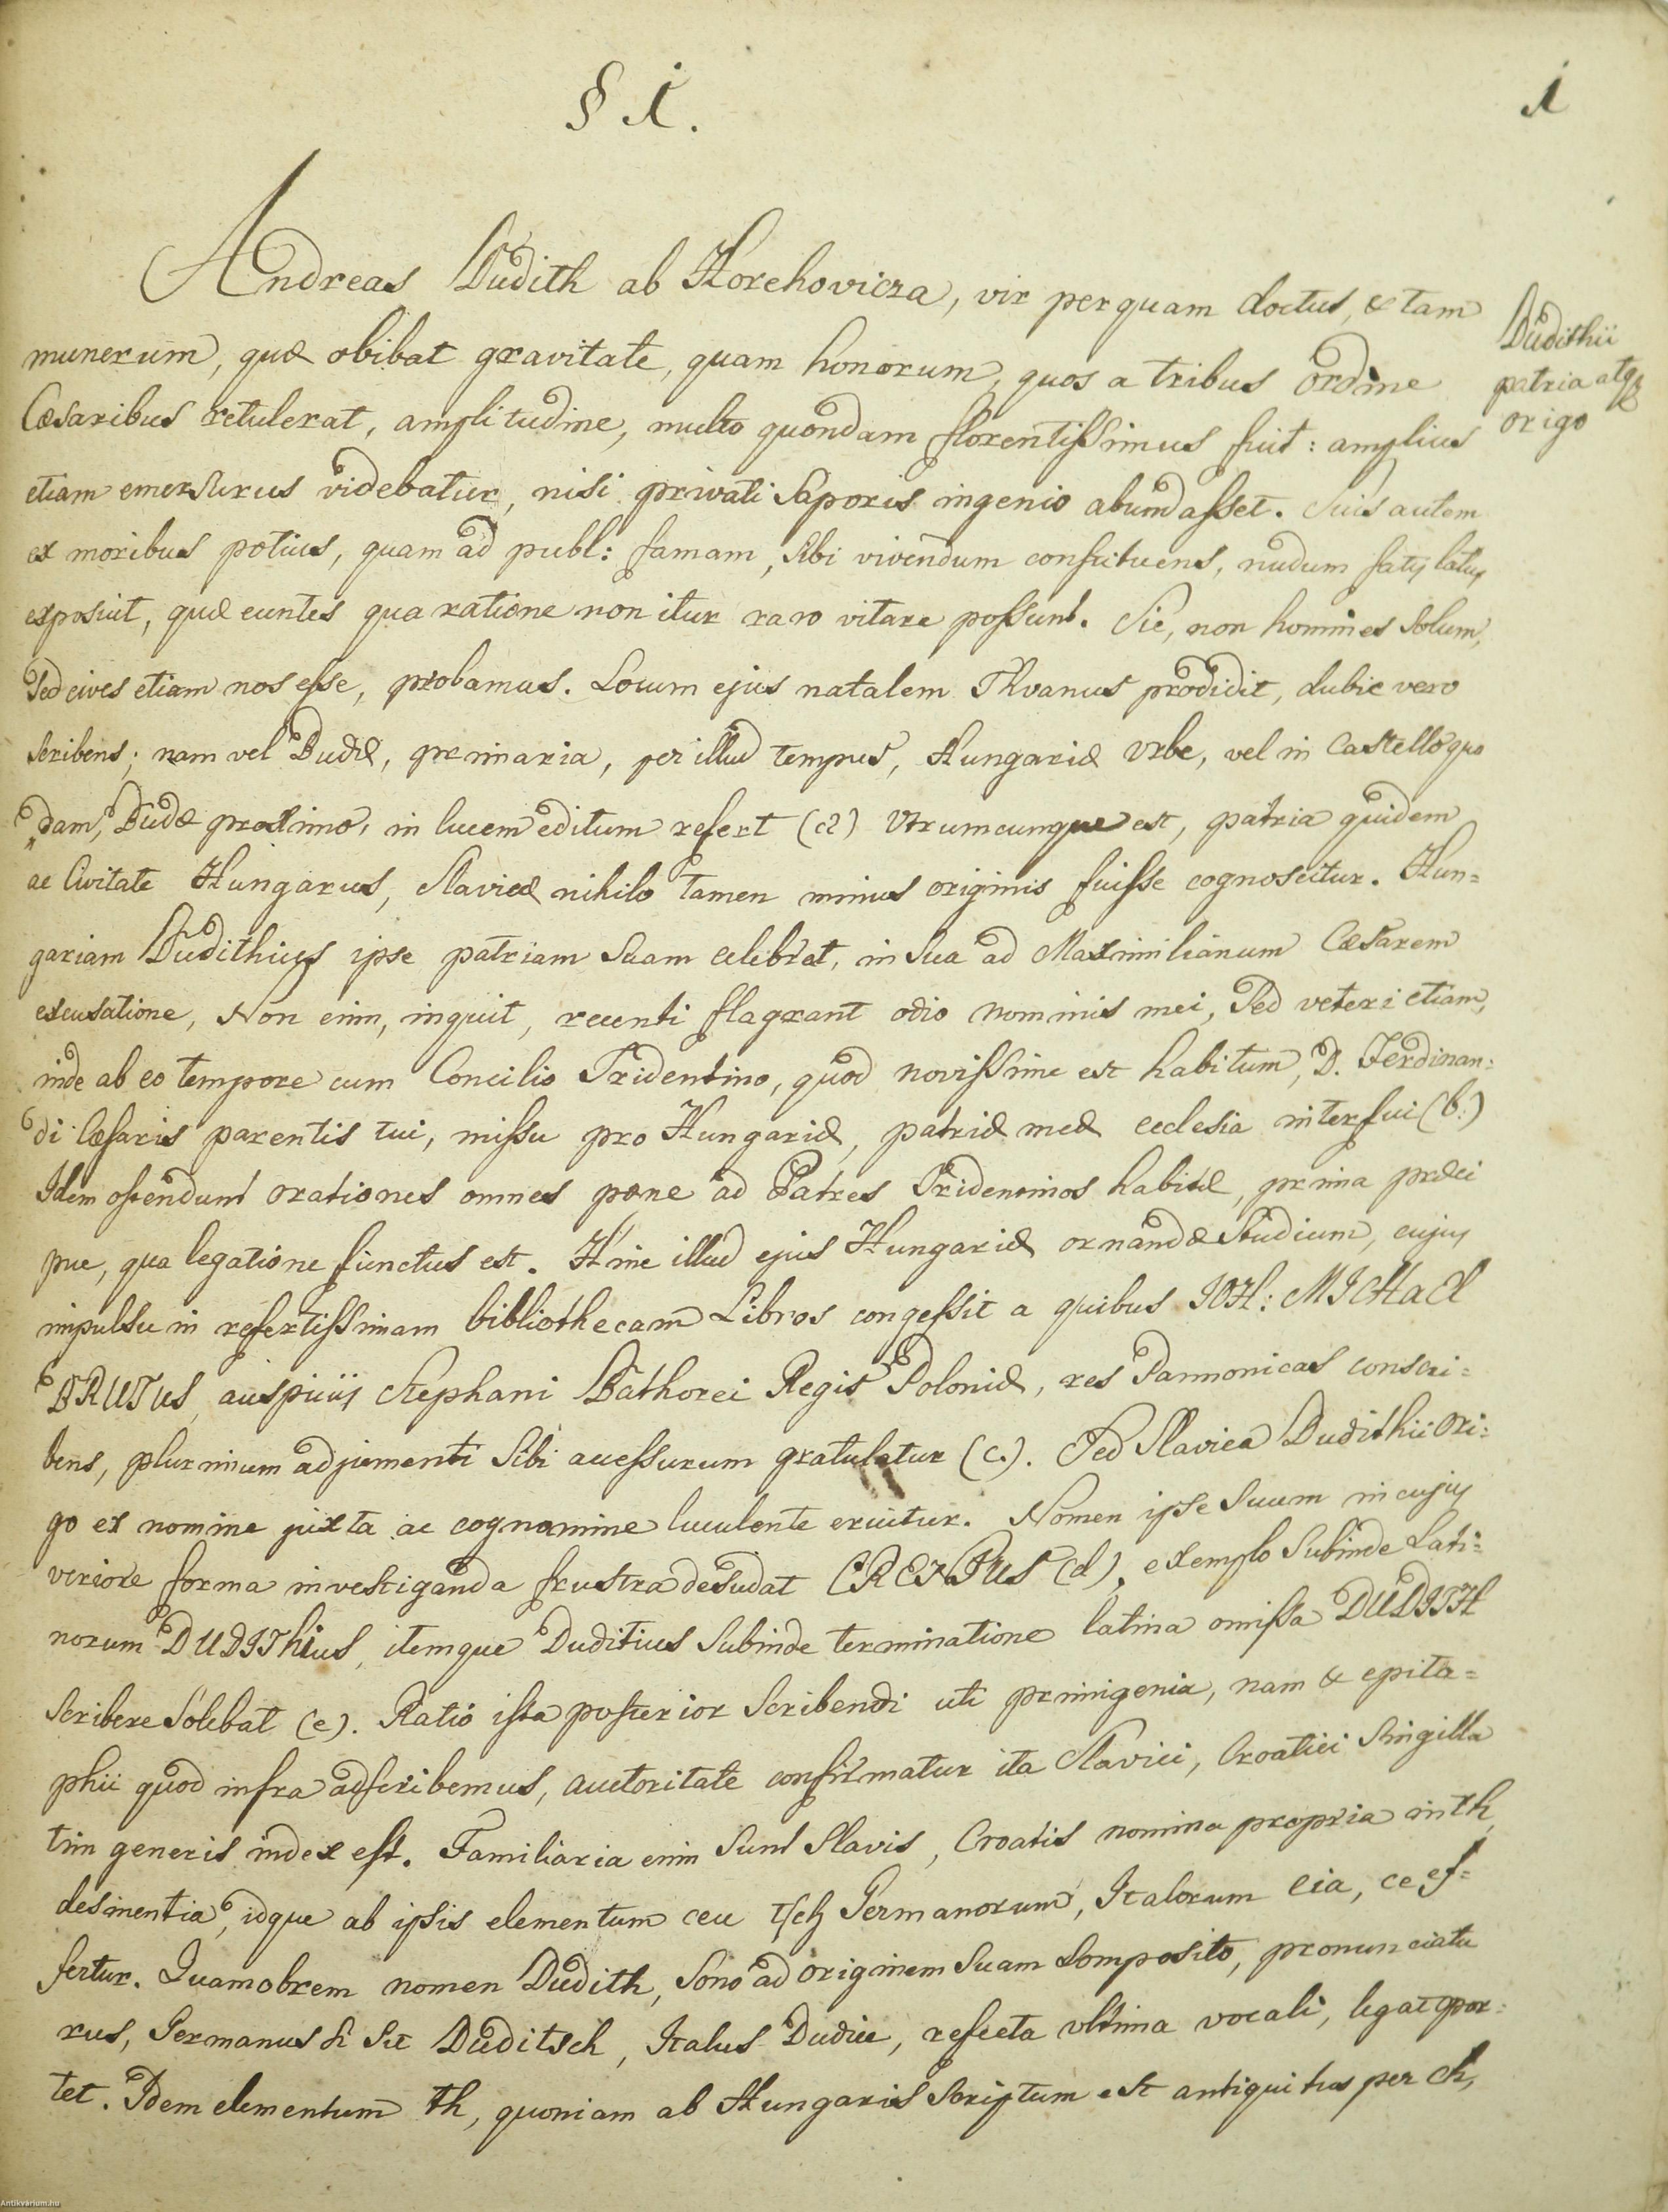 § 1.
1
Andreas Dudith ab Horehovicza, vir perquam doctus, & tam
munerum, quæ obibat gravitate, quam honorum, quos a tribus ordine
Cæsaribus retulerat, amplitudine, multo quondam florentissimus fuit: amplius
etiam emersurus videbatur, nisi privati saporis ingenio abundasset. Suis autem
ex moribus potius, quam ad publ: famam, sibi vivendum constituens, nudum fatis latus
exposuit, quæ euntes qua ratione non itur raro vitare possunt. Sic, non homines solum,
sed cives etiam nos esse, probamus. Locum ejus natalem Thvanus prodidit, dubie vero
scribens; nam vel Budæ, primaria, per illud tempus, Hungariæ Urbe, vel in Castello quo
dam, Budæ proximo, in lucem editum refert (a) Utrumcunque est, patria quidem
ac Civitate Hungarus, Slavicæ nihilo tamen minus originis fuisse cognoscitur. Hun=
gariam Dudithius ipse patriam suam celebrat, in sua ad Maximilianum Cæsarem
excusatione, Non enim, inquit, recenti flagrant odio nominis mei, sed veteri etiam,
inde ab eo tempore cum Concilio Tridentino, quod novissime est habitum, D. Ferdinan=
di Cæsaris parentis tui, missu pro Hungariæ, patriæ meæ ecclesia interfui (b.)
Idem ostendunt orationes omnes pæne ad Patres Tridentinos habitæ, prima præci
pue, qua legatione functus est. Hinc illud ejus Hungariæ ornandæ studium, cujus
impulsu in refertissimam bibliothecam Libros congessit a quibus IOH: MICHaEl
BRUTUS, auspiciis Stephani Bathorei Regis Poloniæ, res Pannonicas conscri=
bens, plurimum adjumenti sibi accessurum gratulatur (c.). Sed Slavica Dudithii ori=
go ex nomine juxta ac cognomine luculente eruitur. Nomen ipse suum in cujus
veriore forma investiganda frustra desudat CRENIUS (d), exemplo subinde Lati=
norum DUDIThius, itemque Duditius subinde terminatione latina omissa DUDITH
scribere solebat (e). Ratio ista posterior scribendi uti primigenia, nam & epita=
phii quod infra adscribemus, auctoritate confirmatur ita Slavici, Croatici singilla
tim generis index est. Familiaria enim sunt Slavis, Croatis nomina propria in th
desinentia, idque ab ipsis elementum ceu tsch Germanorum, Italorum cia, ce ef=
fertur. Quamobrem nomen Dudith, sono ad originem suam composito, pronunciatu
rus, Germanus si sit Duditsch, Italus Dudice, refecta ultima vocali, legat opor=
tet. Idem elementum th, quoniam ab Hungaris scriptum est antiquitus per ch,
Dudithii
patria atq
origo
Antikvárium.hu